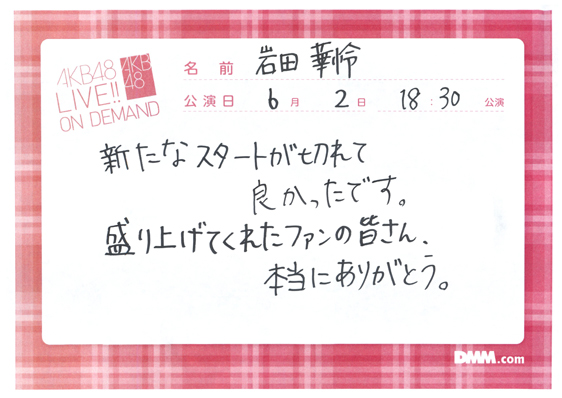 AKB48
LIVE!!
ON DEMAND
AKB
48
名前 岩田華怜
公演日 6月 2日 18:30 公演
新たなスタートが切れて
良かったです。
盛り上げてくれたファンの皆さん、
本当にありがとう。
DMM.com